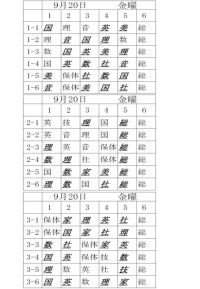 9月20日 金曜
1 2 3 4 5 6
1-1 国 理 音 英 美 総
1-2 理 音 国 理 数 総
1-3 数 国 英 美 理 総
1-4 国 英 数 社 音 総
1-5 美 保体 社 数 国 総
1-6 音 保体 美 国 社 総
9月20日 金曜
1 2 3 4 5 6
2-1 英 技 理 国 総 総
2-2 英 音 理 国 総 総
2-3 理 英 音 保体 総 総
2-4 数 理 社 保体 総 総
2-5 国 数 家 美 総 総
2-6 理 数 国 社 総 総
9月20日 金曜
1 2 3 4 5 6
3-1 保体 家 理 英 社 総
3-2 保体 国 家 社 理 総
3-3 数 社 保体 家 英 総
3-4 国 英 保体 技 数 総
3-5 理 数 英 社 技 総
3-6 英 理 数 国 家 総